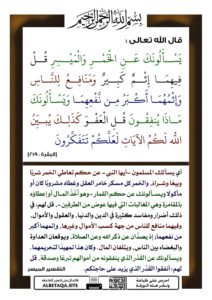 بسم الله الرحمن الرحيم
قال الله تعالى :
يَسْأَلُونَكَ عَنِ الْخَمْرِ وَالْمَيْسِرِ قُلْ
فِيهِمَا إِثْمٌ كَبِيرٌ وَمَنَافِعُ لِلنَّاسِ
وَإِثْمُهُمَا أَكْبَرُ مِن نَّفْعِهِمَا وَيَسْأَلُونَكَ
مَاذَا يُنفِقُونَ قُلِ الْعَفْوَ كَذَلِكَ يُبَيِّنُ
اللَّهُ لَكُمُ الْآيَاتِ لَعَلَّكُمْ تَتَفَكَّرُونَ
[البقرة - ٢١٩]
أي يسألك المسلمون -أيها النبي- عن حكم تعاطي الخمر شربًا
وبيعًا وشراءً، والخمر كل مسكر خامر العقل وغطاه مشروبًا كان أو
مأكولا ويسألونك عن حكم القمار -وهو أَخْذُ المال أو إعطاؤه
بالمقامرة وهي المغالبات التي فيها عوض من الطرفين-، قل لهم: في
ذلك أضرار ومفاسد كثيرة في الدين والدنيا، والعقول والأموال،
وفيهما منافع للناس من جهة كسب الأموال وغيرها، وإثمهما أكبر
من نفعهما؛ إذ يصدان عن ذكر الله وعن الصلاة، ويوقعان العداوة
والبغضاء بين الناس، ويتلفان المال. وكان هذا تمهيدًا لتحريمهما.
ويسألونك عن القدر الذي ينفقونه من أموالهم تبرعًا وصدقة، قل
لهم: أنفقوا القدر الذي يزيد على حاجتكم.
التفسير الميسر
ALBETAQA.SITE